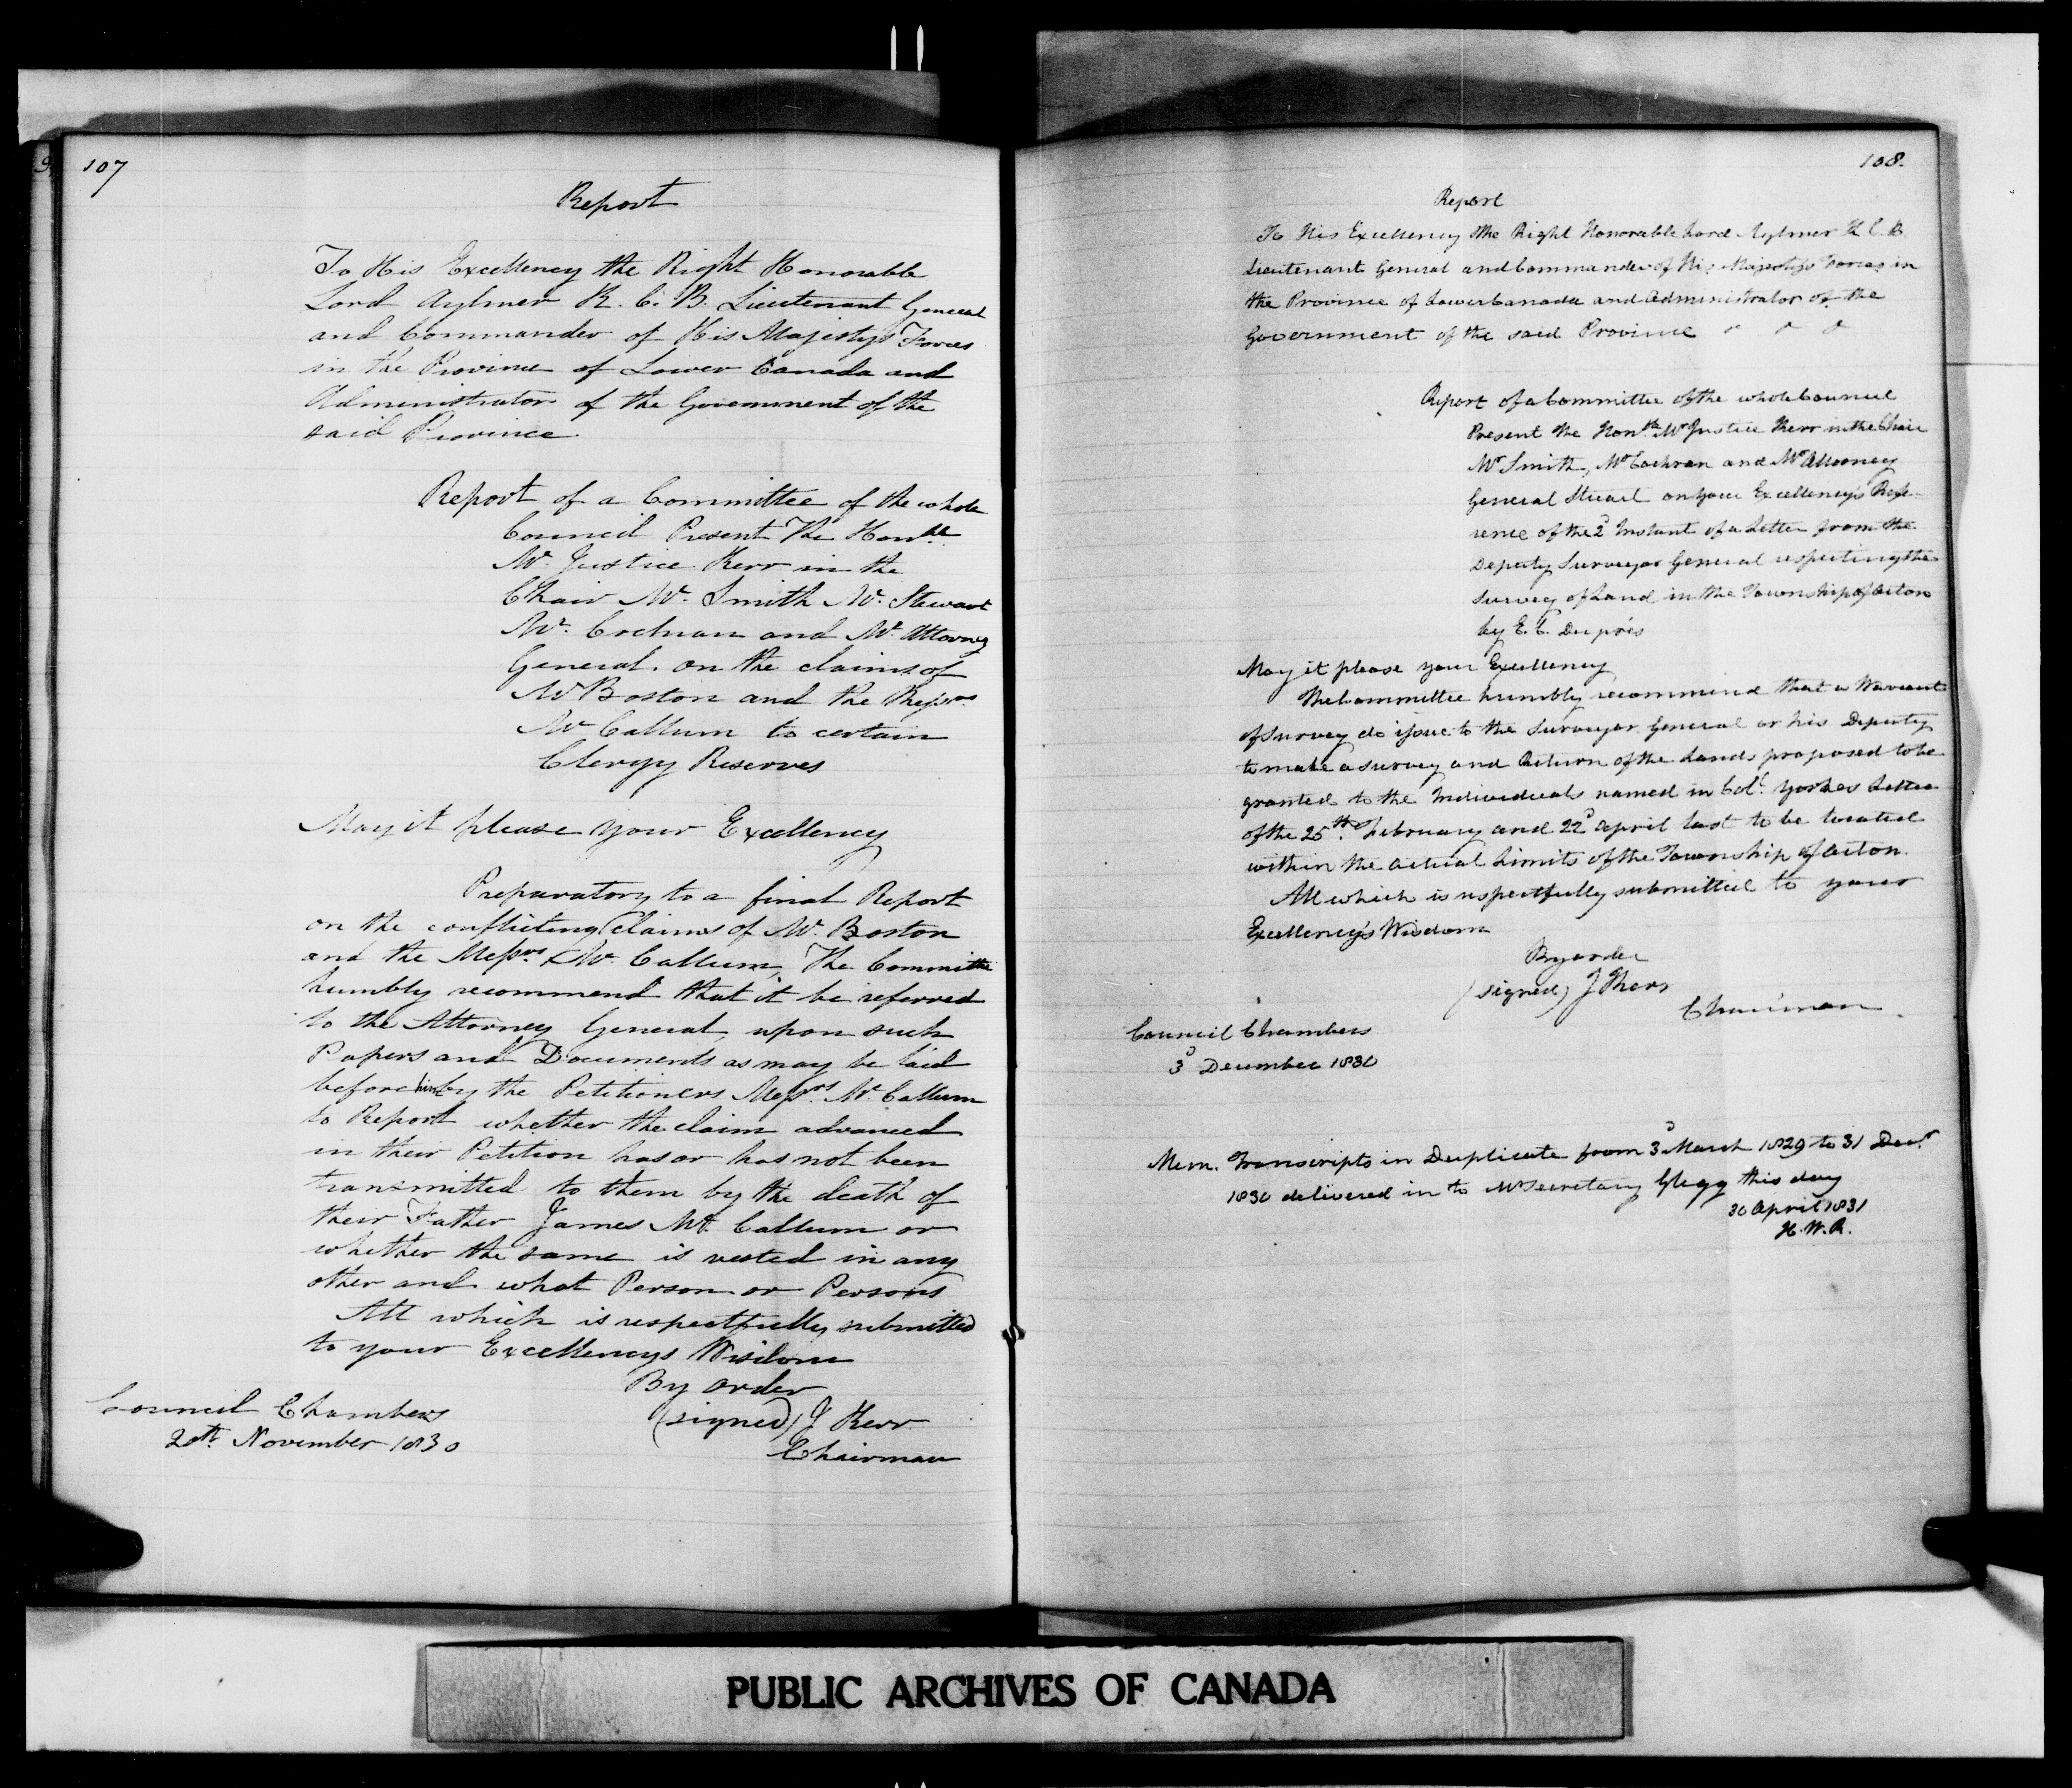 107
Report
To His Excellency the Right Honorable
Lord Aylmer K. C. B. Lieutenant General
and Commander of His Majesty's Forces
in the Province of Lower Canada and
Administrator of the Government of the
said Province
Report of a Committee of the whole
Council Present The Honble
Mr. Justice Kerr in the
Chair Mr. Smith Mr. Stewart
Mr. Cochran and Mr. Attorney
General. on the claims of
Mr Boston and the Messrs
Mc Callum to certain
Clergy Reserves
May it please your Excellency
Preparatory to a final Report
on the conflicting Claims of Mr. Boston
and the Messrs Mc. Callum, The Committee
humbly recommend that it be referred
to the Attorney General, upon such
Papers and Documents as may be laid
before him by the Petitioners Messrs. Mc. Callum
to Report whether the claim advanced
in their Petition has or has not been
transmitted to them by the death of
their Father James Mc. Callum or
whether the same is vested in any
other and what Person or Persons
All which is respectfully submitted
to your Excellencys Wisdom
By order
(signed) J Kerr
Chairman
Council Chambers
20th. November 1830
108.
Report
To His Excellency The Right Honorable Lord Aylmer K. C. B.
Lieutenant General and Commander of His Majesty's Forces in
the Province of Lower Canada and Administrator of the
Government of the said Province
Report of a Committee of the whole Council
Present the Honble. Mr Justice Kerr in the Chair
Mr Smith, Mr Cochran and Mr Attorney
General Stuart on your Excellency's Refe-
rence of the 2d Instant of a Letter from the
Deputy Surveyor General respecting the
Survey of Land in the Township of Acton
by E. C. Duprés
May it please your Excellency
The Committee humbly recommend that a Warrant
of Survey do issue to the Surveyor General or his Deputy
to make a survey and Return of the Lands proposed to be
granted to the Individuals named in Colo. Yorkes Letter
of the 25th. February and 22d April last to be located
within the actual Limits of the Township of Acton.
All which is respectfully submitted to your
Excellency's Wisdom
By order
(signed) J Kerr
Chairman.
Council Chambers
3d December 1830
Mem. Transcripts in Duplicate from 3d March 1829 to 31 Decr.
1830 delivered in to Mr Secretary Glegg this day
30 April 1831
H. W. R.
PUBLIC ARCHIVES OF CANADA